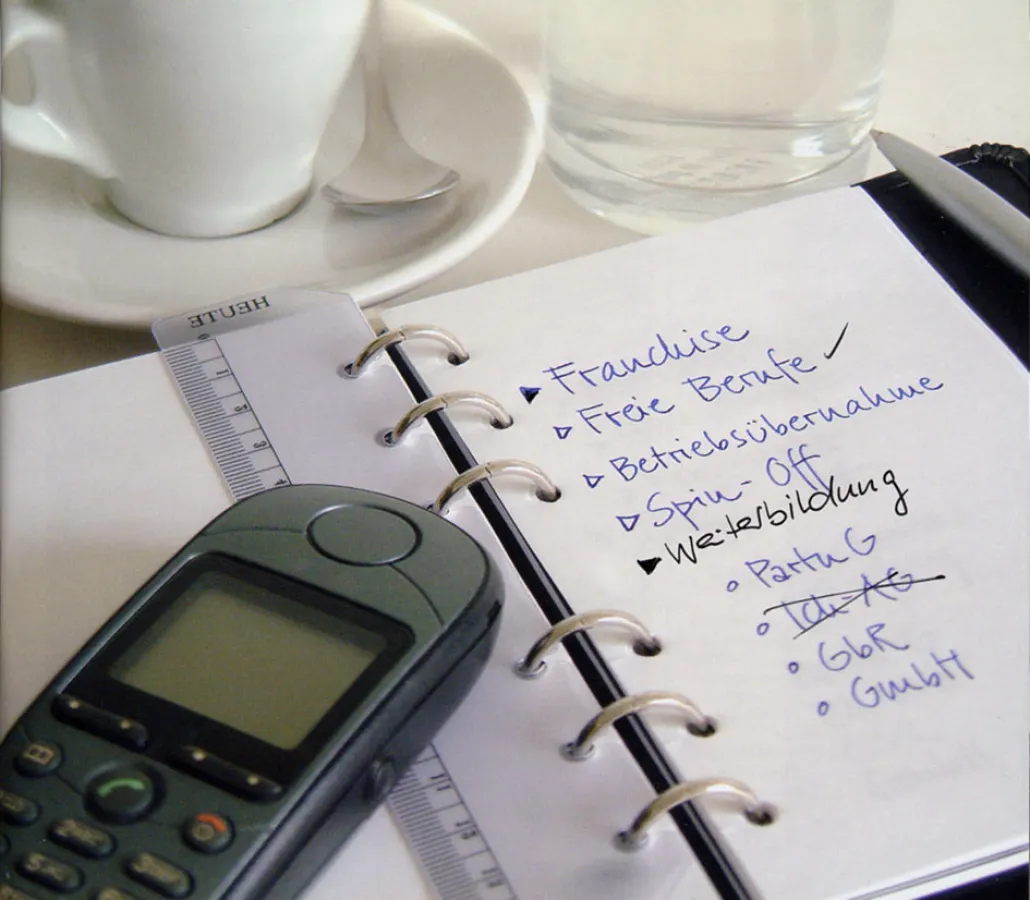 HEUTE
Franchise
Freie Berufe ✓
Betriebsübernahme
Spin-Off
Weiterbildung
PartnG
Ich-AG
GbR
GmbH